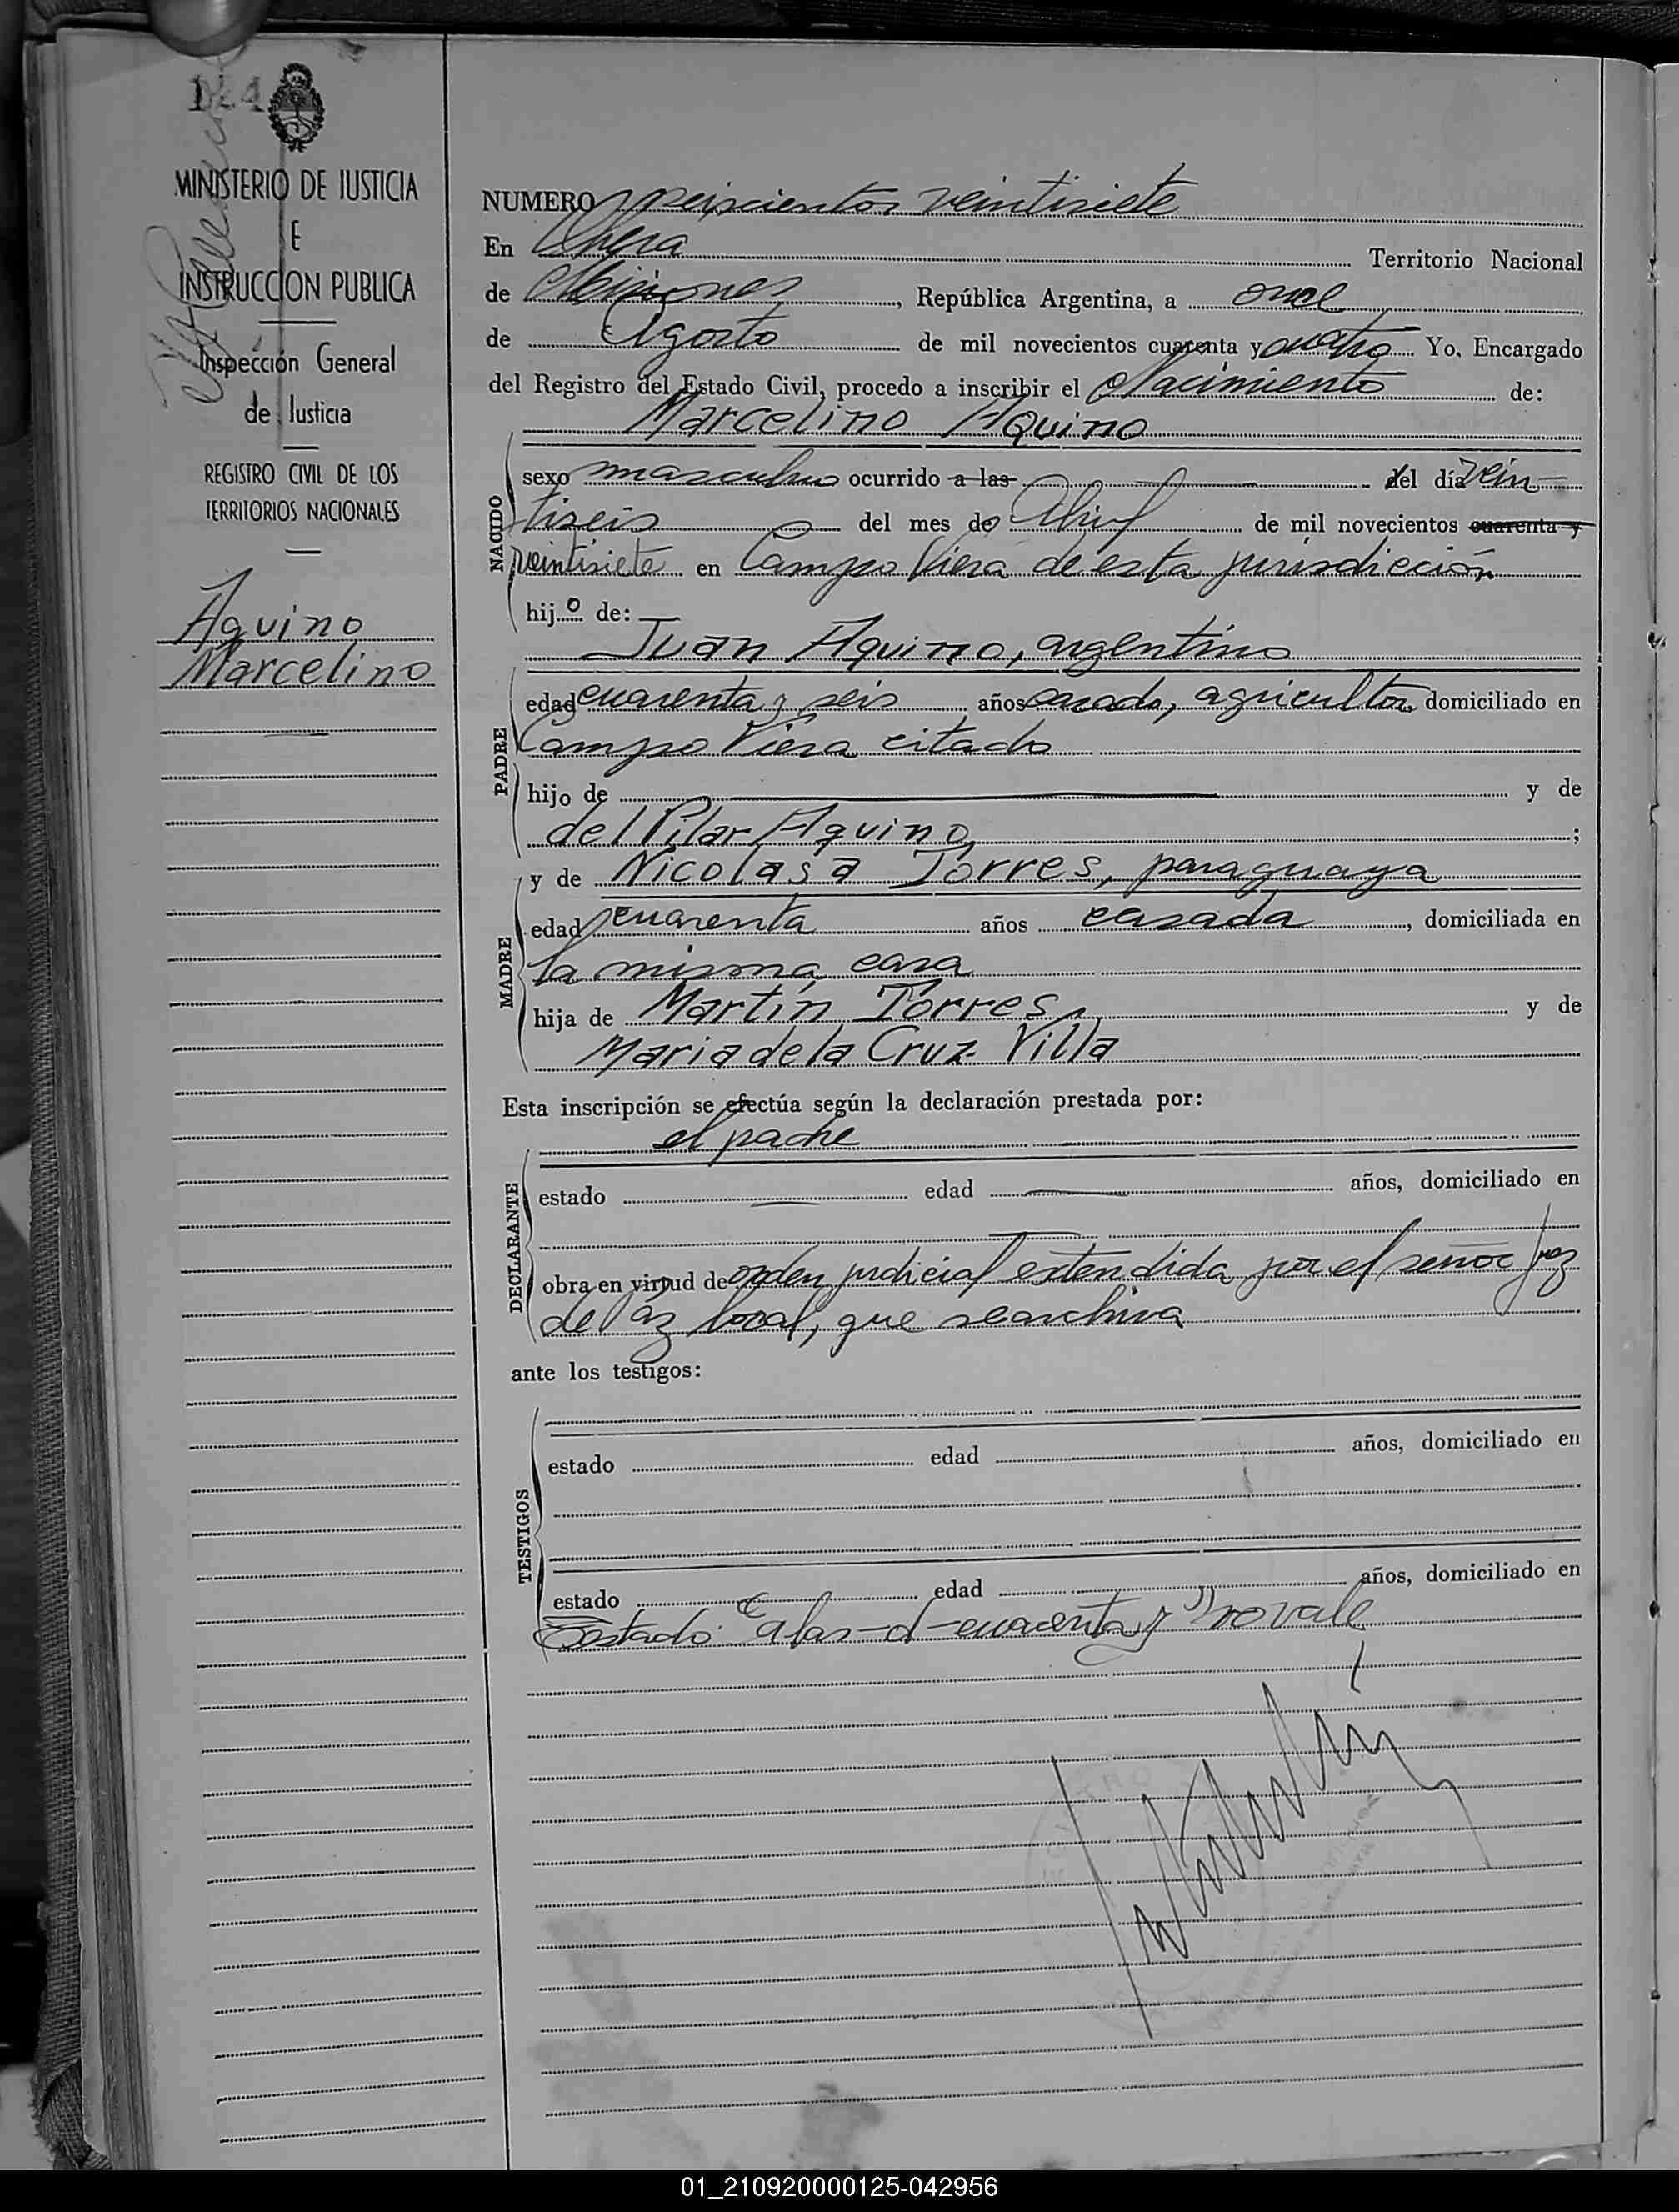 MINISTERIO DE JUSTICIA
E
INSTRUCCION PUBLICA
Inspección General
de Justicia
REGISTRO CIVIL DE LOS
TERRITORIOS NACIONALES
Aquino
Marcelino
NUMERO seiscientos veintisiete
En Obera Territorio Nacional
de Misiones, República Argentina, a once
de Agosto de mil novecientos cuarenta y cuatro Yo, Encargado
del Registro del Estado Civil, procedo a inscribir el Nacimiento de:
Marcelino Aquino
NACIDO
sexo masculino ocurrido a las del día vein
tiseis del mes de Abril de mil novecientos cuarenta y
veintisiete en Campo Viera de esta jurisdicción
hijo de:
Juan Aquino, argentino
PADRE
edad cuarenta y seis años casado, agricultor, domiciliado en
Campo Viera citado
hijo de y de
del Pilar Aquino;
MADRE
y de Nicolasa Torres, paraguaya
edad cuarenta años casada, domiciliada en
la misma casa
hija de Martín Torres y de
Maria de la Cruz Villa
Esta inscripción se efectúa según la declaración prestada por:
el padre
DECLARANTE
estado edad años, domiciliado en
obra en virtud de orden judicial extendida por el señor Juez
de Paz local, que se archiva
ante los testigos:
TESTIGOS
estado edad años, domiciliado en
estado edad años, domiciliado en
Testado: a las-d-cuarenta y No vale
01_210920000125-042956